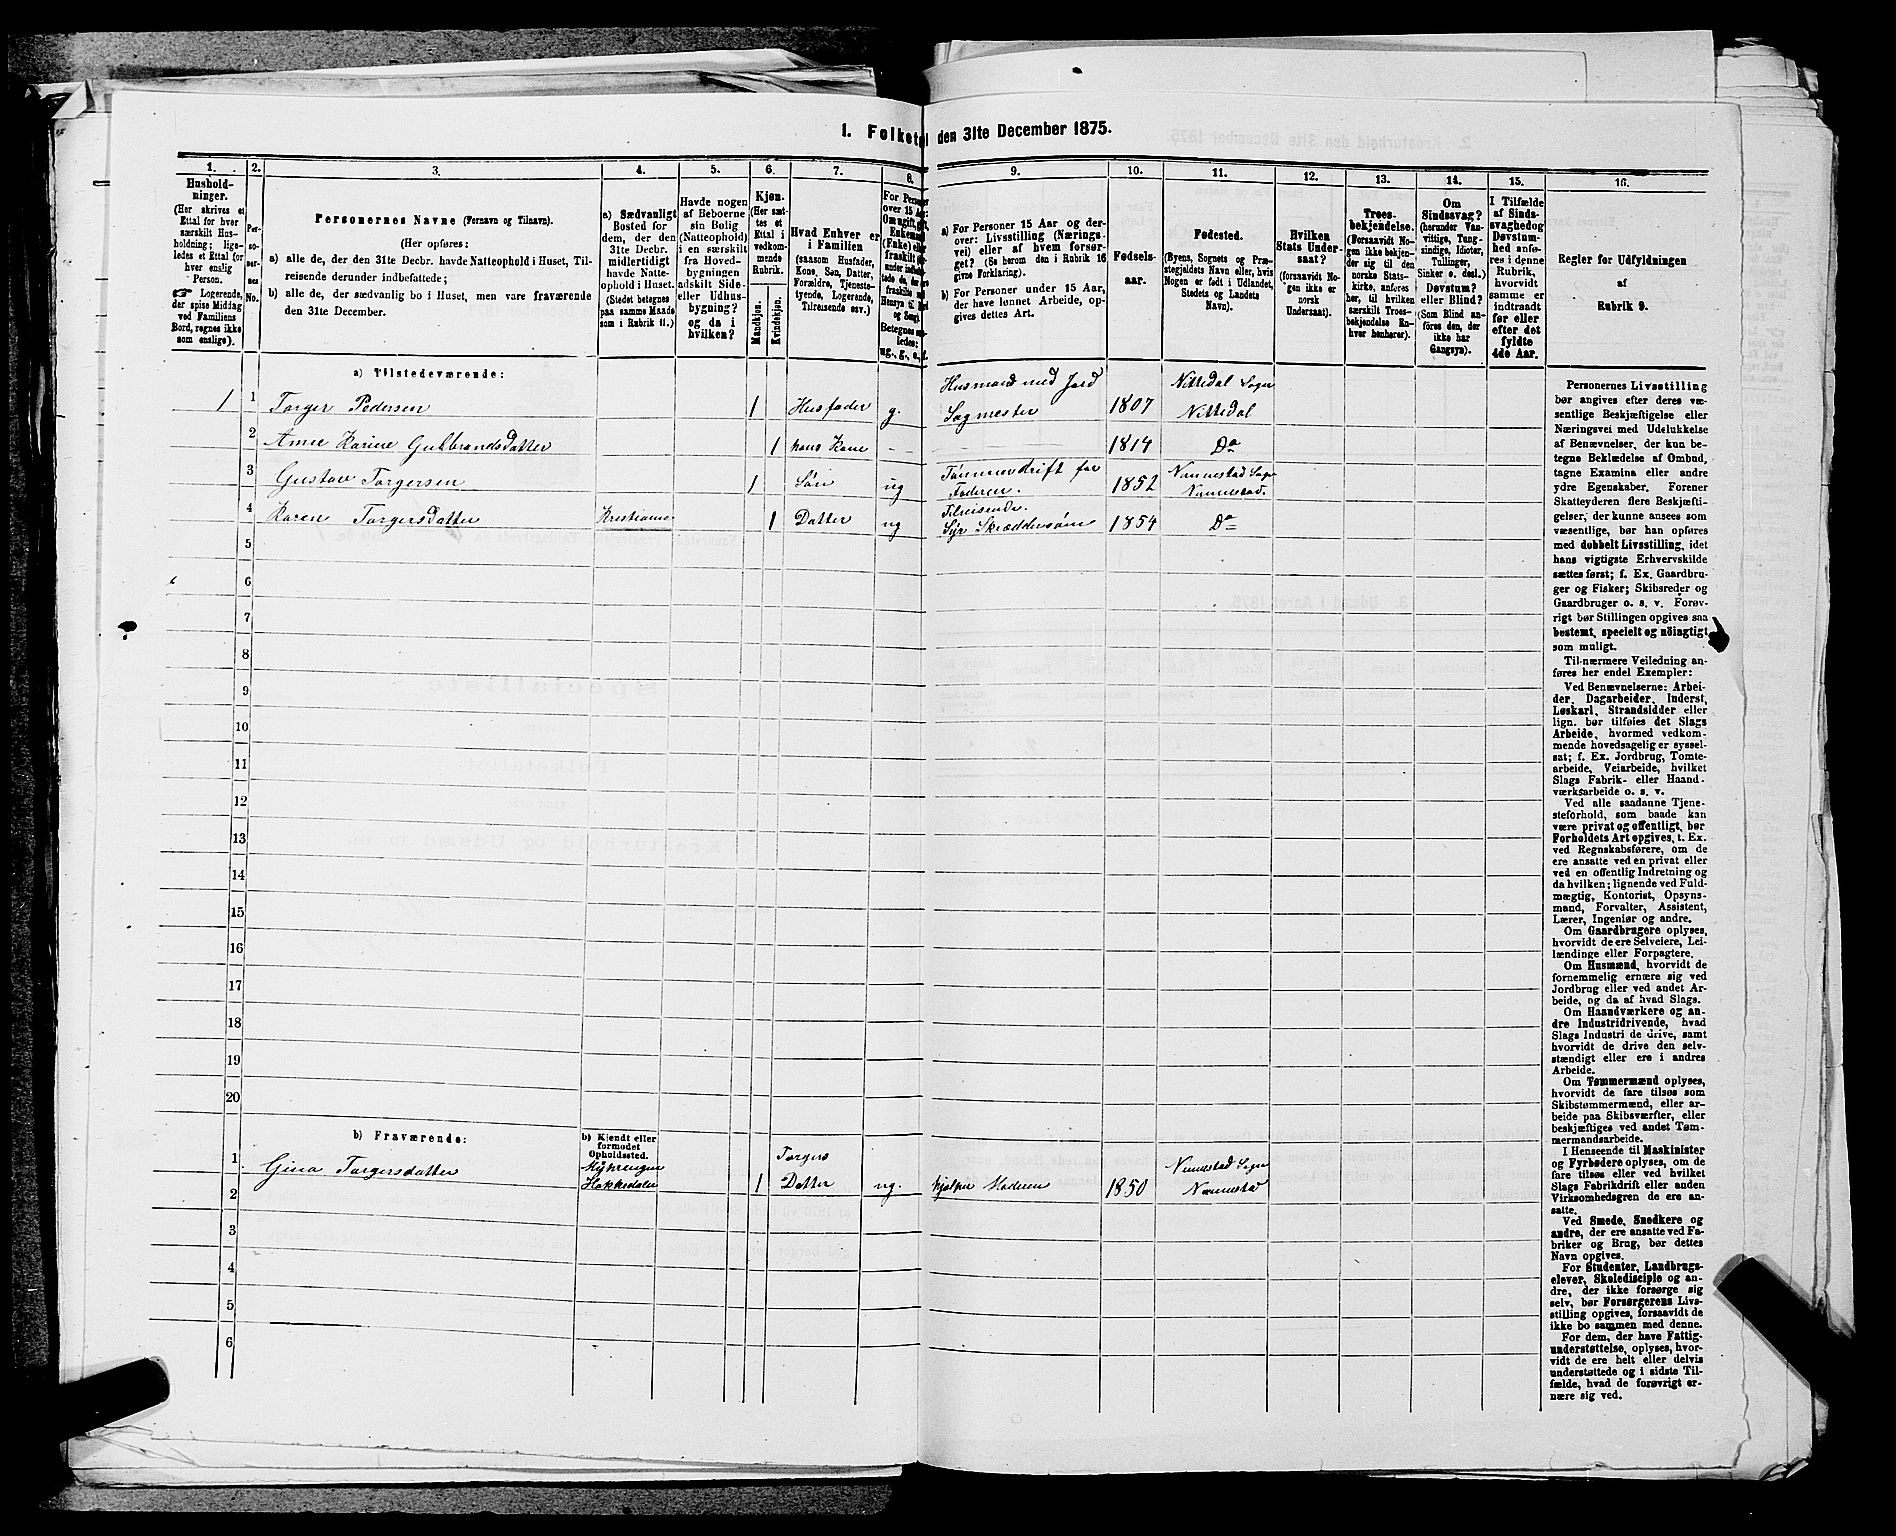 1. Folketal den 31te December 1875.
1.
2.
3.
4.
5.
6.
7.
8.
9.
10.
11.
12.
13.
14.
15.
16.
Hushold-
ninger.
(Her skrives et
Ettal for hver
særskilt Hus-
holdning; lige-
ledes et Ettal for
hver enslig
Person.
☞ Logerende,
der spise Middag
ved Familiens
Bord, regnes ikke
som enslige).
Per-
so-
ner-
nes
No.
Personernes Navne (Fornavn og Tilnavn).
(Her opføres:
a) alle de, der den 31te Decbr. havde Natteophold i Huset, Til-
reisende derunder indbefattede;
b) alle de, der sædvanlig bo i Huset, men vare fraværende
den 31te December.
a) Sædvanligt
Bosted for
dem, der den
31te Decbr.
midlertidigt
havde Natte-
ophold i Huset.
(Stedet betegnes
paa samme Maade
som i Rubrik 11.)
Havde nogen
af Beboerne
sin Bolig
(Natteophold)
i en særskilt
fra Hoved-
bygningen
adskilt Side-
eller Udhus-
bygning?
og da i
hvilken?
Kjøn.
(Her sæt-
tes et
Ettal i
vedkom-
mende
Rubrik.
Mandkjøn.
Kvindekjøn.
Hvad Enhver er
i Familien
(saasom Husfader,
Kone, Søn, Datter,
Forældre, Tjeneste-
tyende, Logerende,
Tilreisende osv.)
For Personer
over 15 Aar:
Om ugift, gift,
Enkemand
(Enke) eller
fraskilt
ug., g., e., f.
a) For Personer 15 Aar og der-
over: Livsstilling (Nærings-
vei) eller af hvem forsør-
get? (Se herom den i Rubrik 16
givne Forklaring).
b) For Personer under 15 Aar,
der have lønnet Arbeide, op-
gives dettes Art.
Fødsels-
aar.
Fødested.
(Byens, Sognets og Præ-
stegjeldets Navn eller, hvis
Nogen er født i Udlandet,
Stedets og Landets
Navn).
Hvilken
Stats Under-
saat?
(forsaavidt No-
gen ikke er
norsk
Undersaat).
Troes-
bekjendelse.
(Forsaavidt No-
gen ikke bekjen-
der sig til den
norske Stats-
kirke, anføres
her, til hvilken
særskilt Troes-
bekjendelse En-
hver henhører).
Om
Sindssvag?
(herunder Van-
vittige, Tung-
sindige, Idioter,
Tullinger,
Sinker o. desl.)
Døvstum?
eller Blind?
(Som Blind an-
føres den, der
ikke har
Gangsyn).
I Tilfælde
af Sinds-
svaghed og
Døvstum-
hed anfø-
res i denne
Rubrik,
hvorvidt
samme er
indtraadt
før eller
efter det
fyldte
4de Aar.
Regler for Udfyldningen
af
Rubrik 9.
a) Tilstedeværende:
1 1 Torger Pedersen 1 Husfader g. Husmand med Jord Sagmester 1807 Nittedal Sogn Nittedal
2 Anne Karine Gulbrandsdatter 1 hans Kone - - 1814 Do
3 Gustav Torgersen 1 Søn ug Tømmerdrift for Faderen. 1852 Nannestad Sogn Nannestad.
4 Karen Torgersdatter Kristiania 1 Datter ug Tilreisende. Syr Skræddersøm 1854 Do
5
6
7
8
9
10
11
12
13
14
15
16
17
18
19
20
b) Fraværende:
b) Kjendt eller
formodet
Opholdssted.
1 Gina Torgersdatter Hakkedalen 1 Torgers Datter ug. hjælper Moderen 1850 Nannestad Sogn Nannestad
2
3
4
5
6
Personernes Livsstilling
bør angives efter deres væ-
sentlige Beskjæftigelse eller
Næringsvei med Udelukkelse
af Benævnelser, der kun be-
tegne Beklædelse af Ombud,
tagne Examina eller andre
ydre Egenskaber. Forener
Skatteyderen flere Beskjæfti-
gelser, der kunne ansees som
væsentlige, bør han opføres
med dobbelt Livsstilling, idet
hans vigtigste Erhvervskilde
sættes først; f. Ex. Gaardbru-
ger og Fisker; Skibsreder og
Gaardbruger o. s. v. Forøv-
rigt bør Stillingen opgives saa
bestemt, specielt og nöiagtigt
som muligt.
Til nærmere Veiledning an-
føres her endel Exempler:
Ved Benævnelserne: Arbei-
der, Dagarbeider, Inderst,
Løskarl, Strandsidder eller
lign. bør tilføies det Slags
Arbeide, hvormed vedkom-
mende hovedsagelig er syssel-
sat; f. Ex. Jordbrug, Tomte-
arbeide, Veiarbeide, hvilket
Slags Fabrik- eller Haand-
værksarbeide o. s. v.
Ved alle saadanne Tjene-
steforhold, som baade kan
være privat og offentligt, bør
Forholdets Art opgives, t. Ex.
ved Regnskabsførere, om de
ere ansatte ved en privat eller
ved en offentlig Indretning og
da hvilken; lignende ved Fuld-
mægtig, Kontorist, Opsyns-
mand, Forvalter, Assistent,
Lærer, Ingeniør og andre.
Om Gaardbrugere oplyses,
hvorvidt de ere Selveiere, Lei-
lændinge eller Forpagtere.
Om Husmænd, hvorvidt de
fornemmelig ernære sig ved
Jordbrug eller ved andet Ar-
beide, og da af hvad Slags.
Om Haandværkere og an-
dre Industridrivende, hvad
Slags Industri de drive, samt
hvorvidt de drive den selv-
stændigt eller ere i andres
Arbeide.
Om Tømmermænd oplyses,
hvorvidt de fare tilsøs som
Skibstømmermænd, eller ar-
beide paa Skibsværfter, eller
beskjæftiges ved andet Tøm-
mermandsarbeide.
I Henseende til Maskinister
og Fyrbødere oplyses, om de
fare tilsøs eller ved hvilket
Slags Fabrikdrift eller anden
Virksomhedsgren de ere an-
satte.
Ved Smede, Snedkere og
andre, der ere ansatte ved Fa-
briker og Brug, bør dettes
Navn opgives.
For Studenter, Landbrugs-
elever, Skoledisciple og an-
dre, der ikke forsørge sig
selv, bør Forsørgerens Livs-
stilling opgives, forsaavidt de
ikke bo sammen med denne.
For dem, der have Fattig-
understøttelse, oplyses, hvor-
vidt de ere helt eller delvis
understøttede og i sidste Til-
fælde, hvad de forøvrigt er-
nære sig ved.